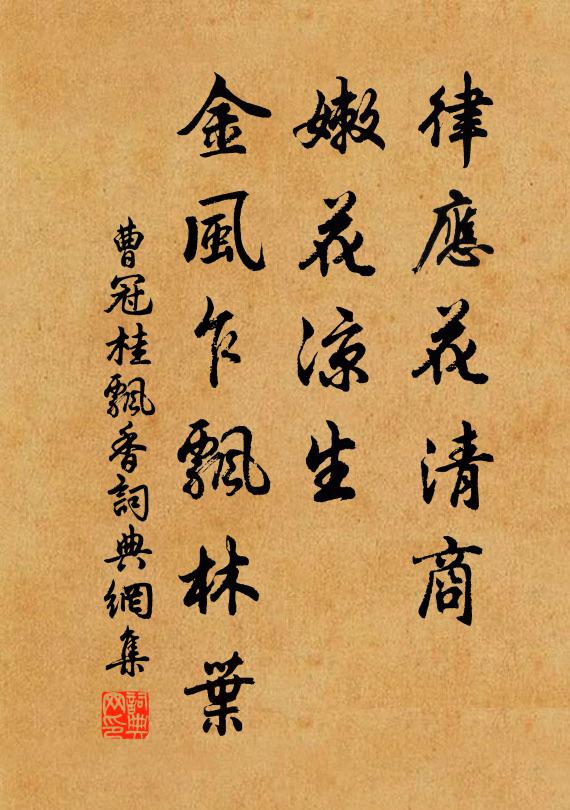 律應花清商
嫩花凉生
金風乍飄林葉
曹冠桂飄香詞典網集
詞典
网印